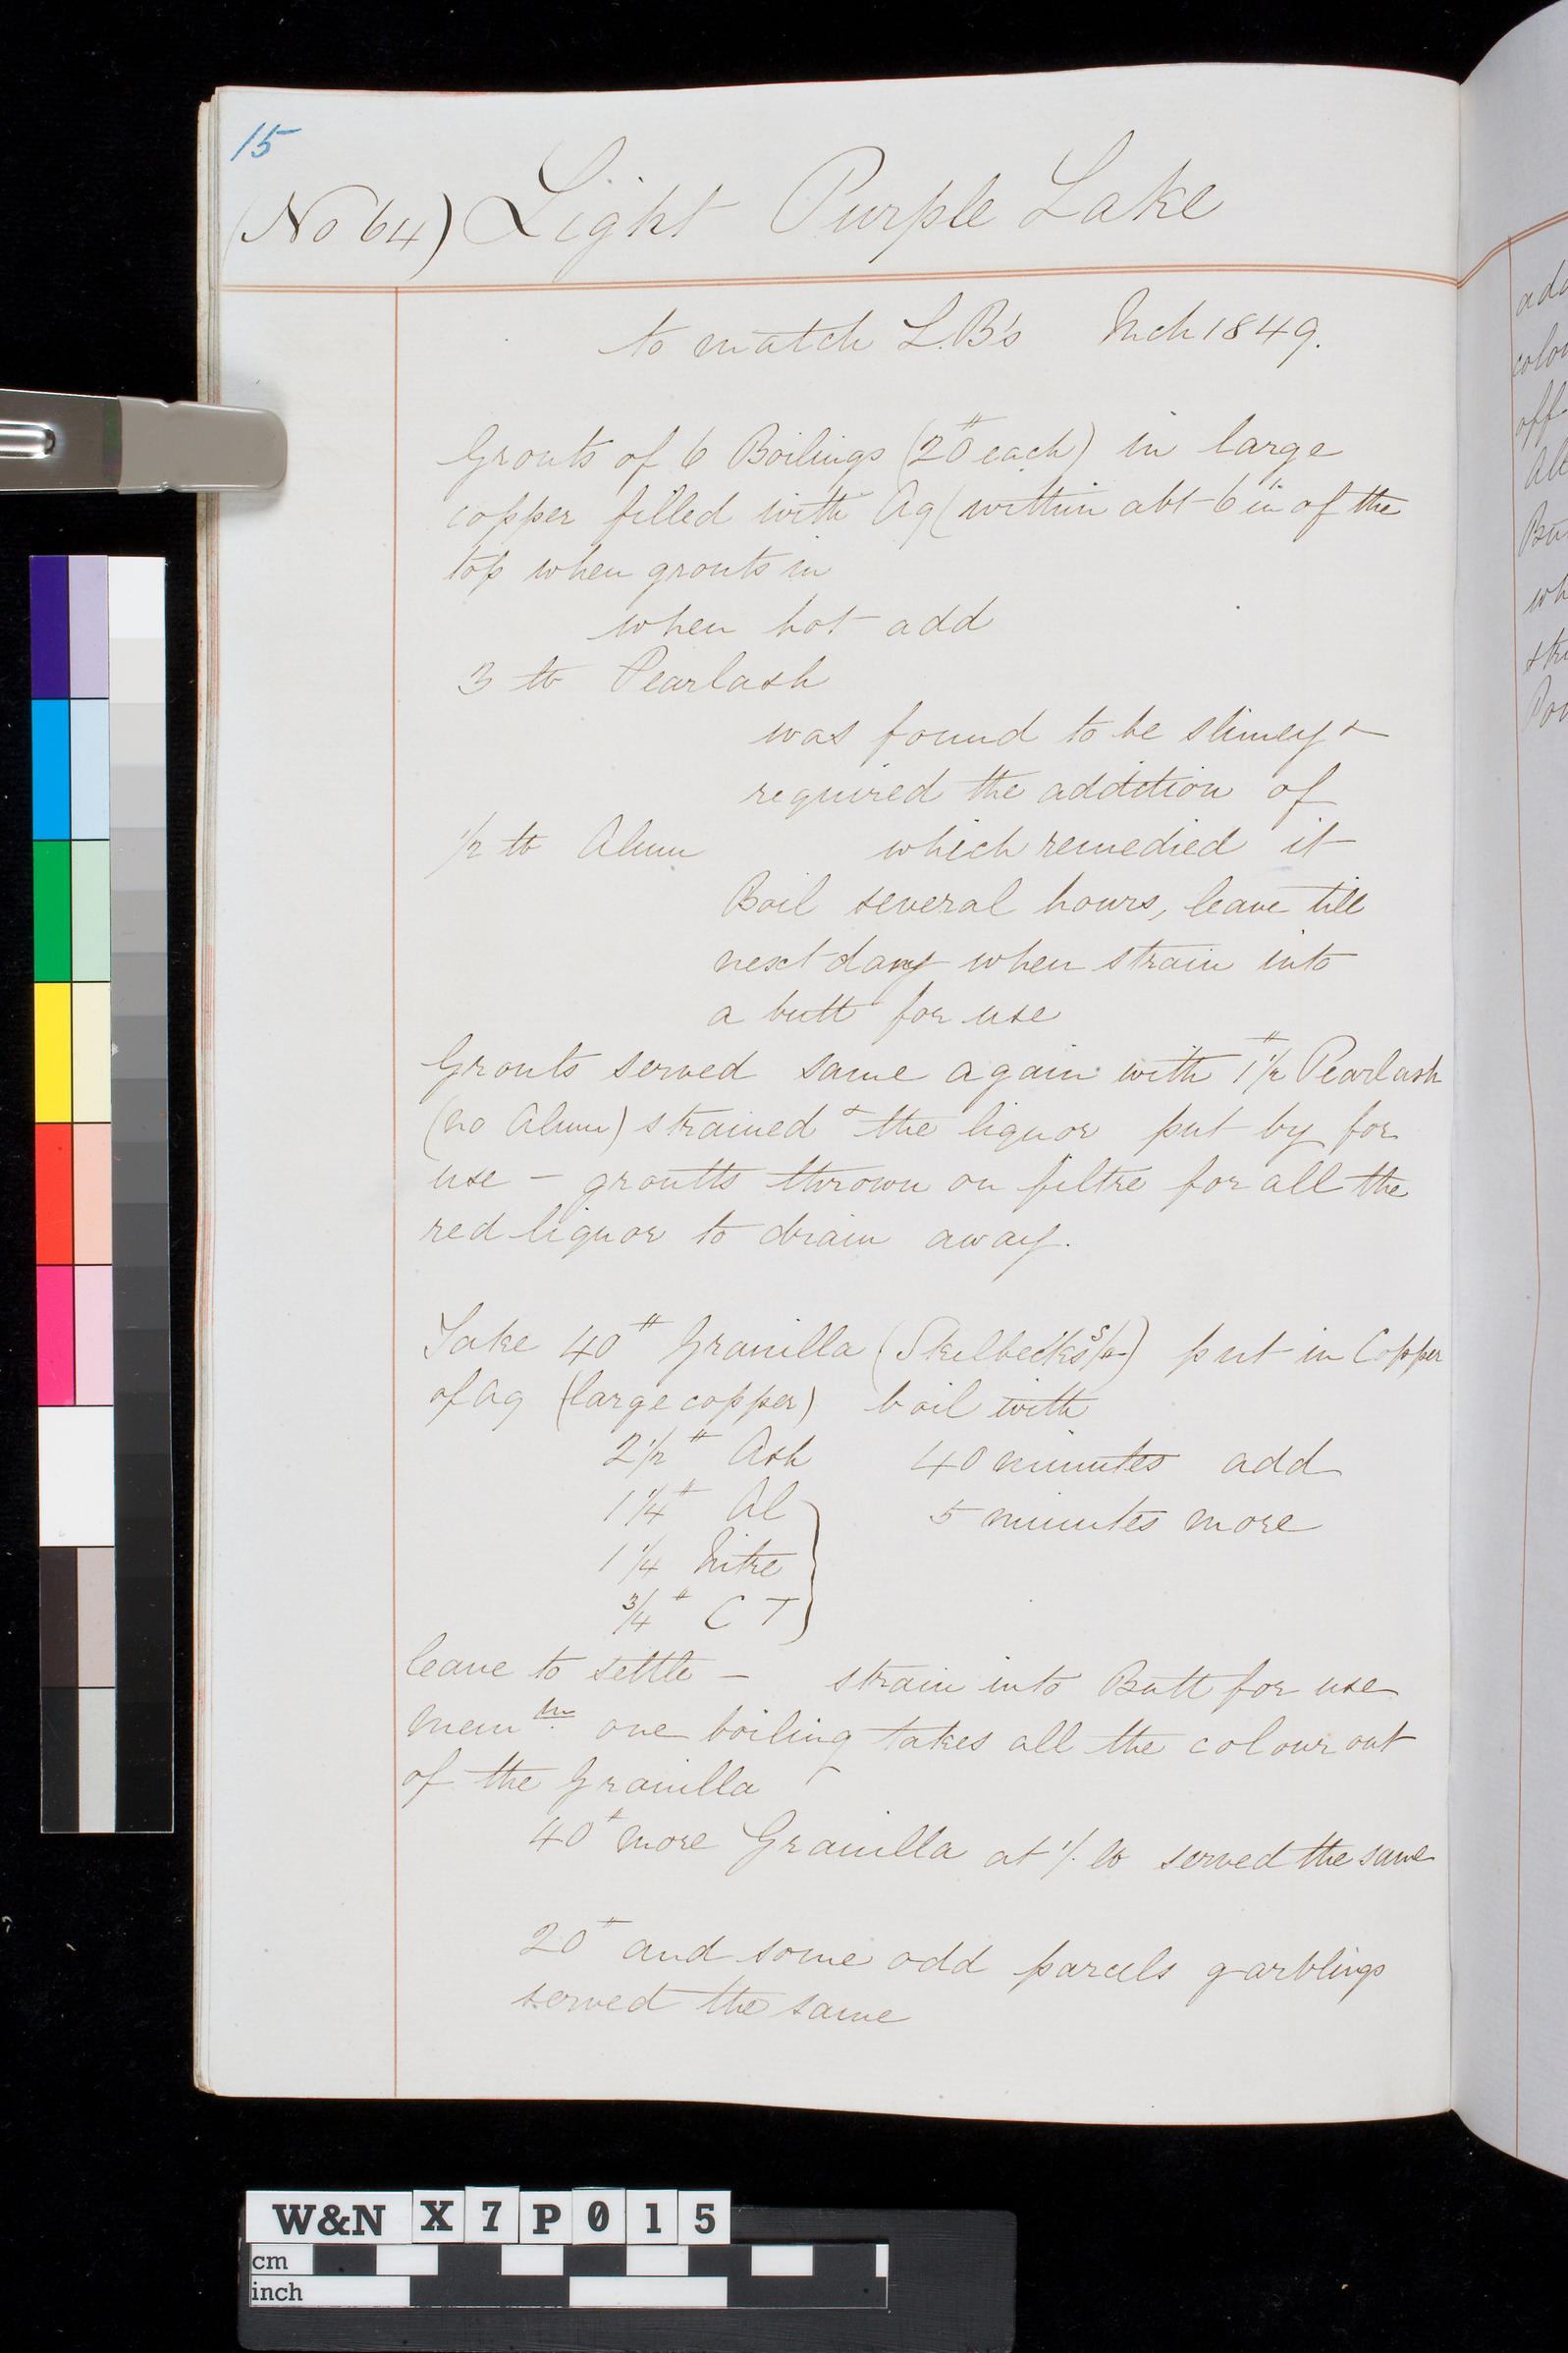 15
(No 64) Light Purple Lake
to match L.B's Mch 1849.
Grouts of 6 Boilings (20# each) in large
copper filled with Aq (within abt 6 in of the
top when grouts in
when hot add
3 lb Pearlash
was found to be slimey &
required the addition of
1/2 lb Alum which remedied it
Boil several hours, leave till
next day when strain into
a butt for use
Grouts served same again with 1 1/2# Pearlash
(no Alum) strained & the liquor put by for
use - groutts thrown on filtre for all the
red liquor to drain away.
Take 40# Granilla (Skilbecks ) put in Copper
of Aq (large copper) boil with
2 1/2# Ash 40 minutes add
1 1/4# Al 5 minutes more
1 1/4 Nitre
3/4# C T
leave to settle - strain into Butt for use
Mem dm one boiling takes all the colour out
of the Granilla
40# more Granilla at 1/. lb served the same
20# and some odd parcels garblings
served the same
ado
colou
off
Al
wh
W&N X7P015
cm
inch